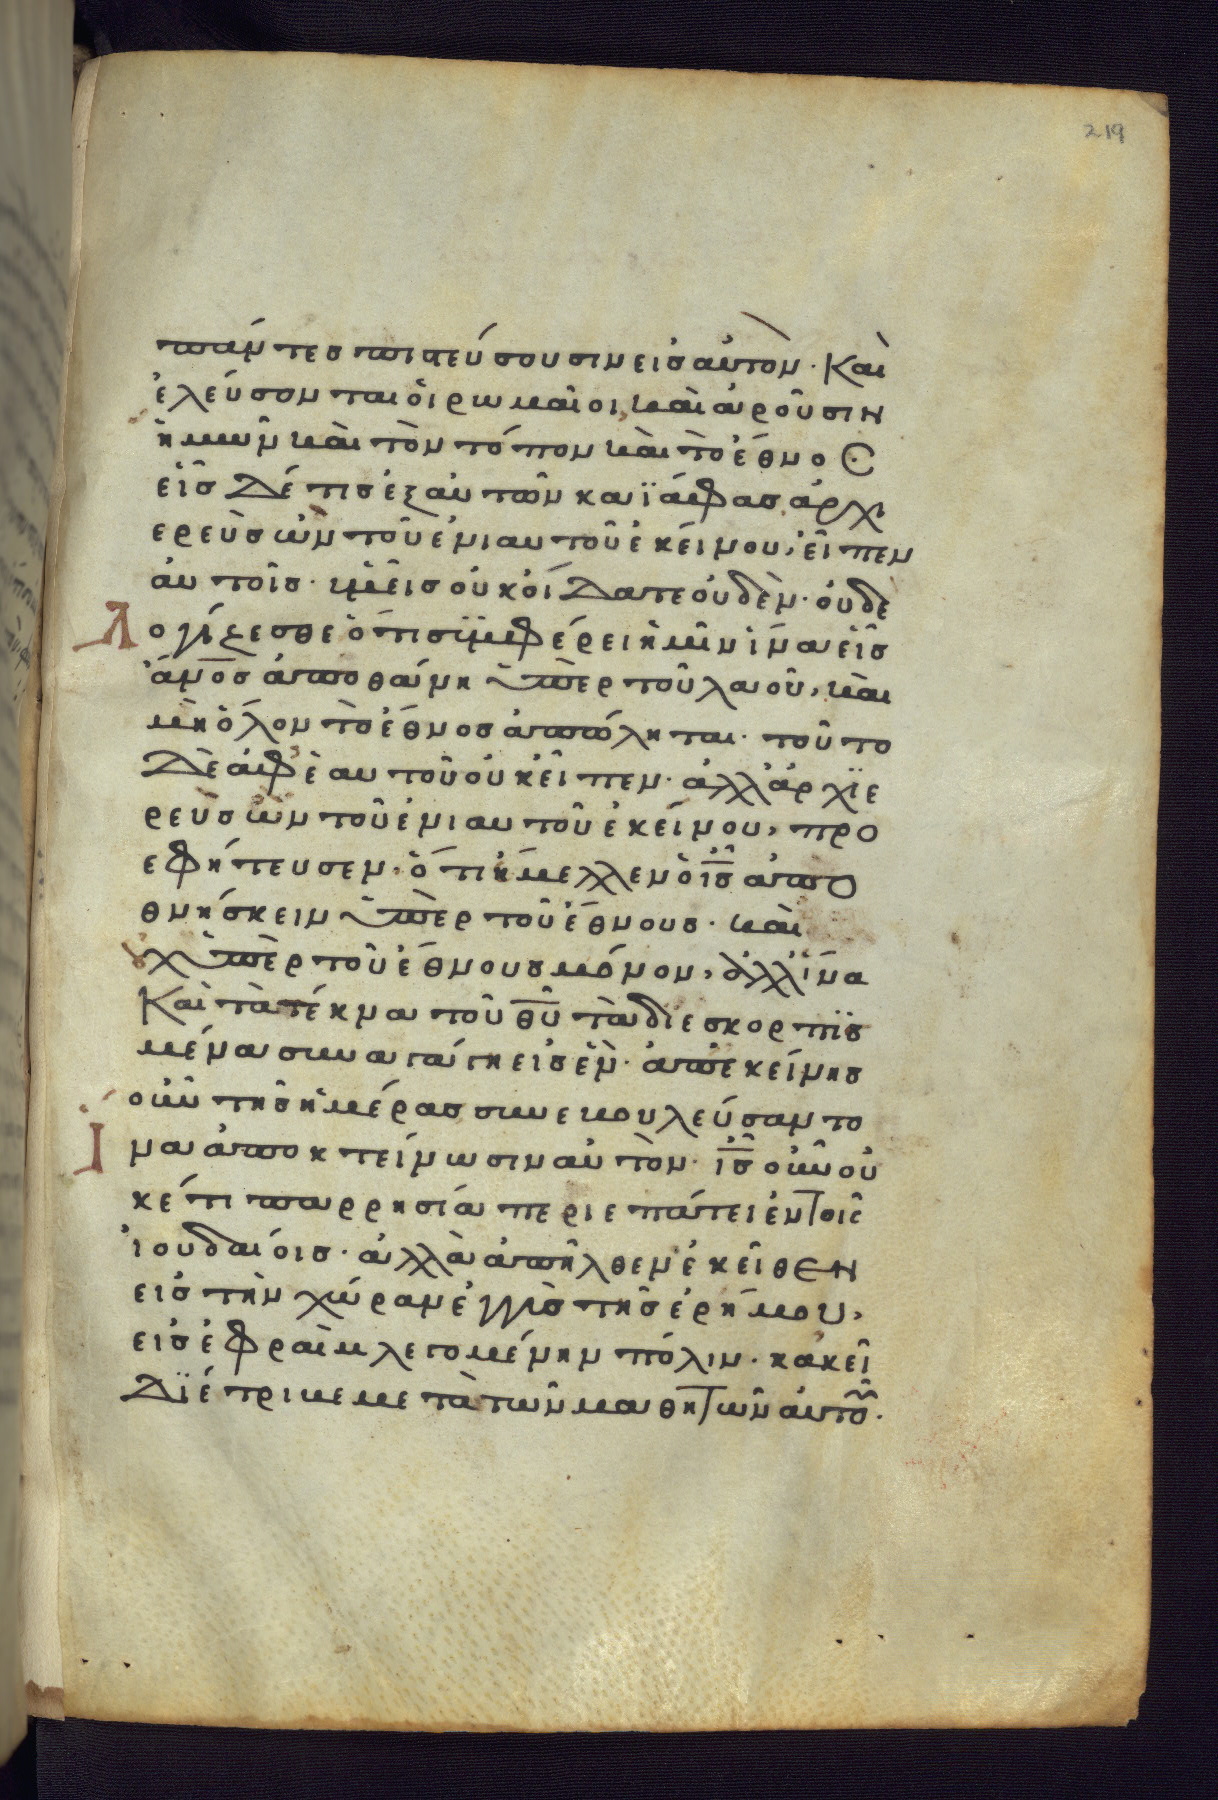 219
πάντες πιστεύσουσιν εἰς αὐτόν· Καὶ
ἐλεύσονται οἱ ρωμαῖοι, καὶ ἀροῦσιν
ἡμῶν καὶ τὸν τόπον καὶ τὸ ἔθνος
εἷς δέ τις ἐξ αὐτῶν καϊάφας ἀρχι
ερεὺς ὢν τοῦ ἐνιαυτοῦ ἐκείνου, εἶπεν
αὐτοῖς· ὑμεῖς οὐκ οἴδατε οὐδὲν· οὐδὲ
λογίζεσθε ὅτι συμφέρει ἡμῖν ἵνα εἷς
ἄνος ἀποθάνη ὑπὲρ τοῦ λαοῦ, καὶ
μὴ ὅλον τὸ ἔθνος ἀπόληται· τοῦτο
δὲ ἀφ' ἑαυτοῦ οὐκ εἶπεν· ἀλλ' ἀρχϊε
ρεὺς ὢν τοῦ ἐνιαυτοῦ ἐκείνου, προ
εφήτευσεν· ὅτι ἤμελλεν ὁ ις ἀπο
θνήσκειν ὑπὲρ τοῦ ἔθνους· καὶ
οὐχ ὑπὲρ τοῦ ἔθνους μόνον, ἀλλ' ἵνα
Καὶ τὰ τέκνα τοῦ θυ τὰ διεσκορπϊσ
μένα συναγάγη εἰς ἕν· ἀπ' ἐκείνης
οὖν τῆς ἡμέρας συνεβουλεύσαντο
ἵνα ἀποκτείνωσιν αὐτὸν· ις οὖν οὐ
κέτι παρρησία περιεπάτει ἐν τοῖς
ἰουδαίοις· ἀλλὰ ἀπῆλθεν ἐκεῖθεν
εἰς τὴν χώραν ἐγγὺς τῆς ἐρήμου,
εἰς ἐφραὶμ λεγομένην πόλιν· κἀκεῖ
δϊέτριβε μετὰ τῶν μαθητῶν αὐτοῦ·